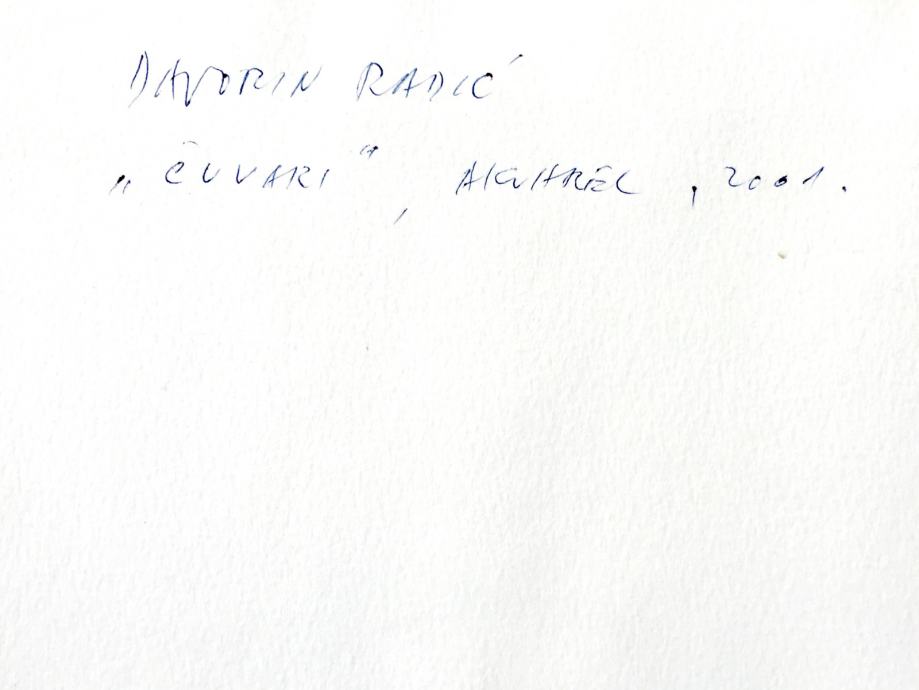 DAVORIN RADIĆ
„ČUVARI“, AKVAREL, 2001.